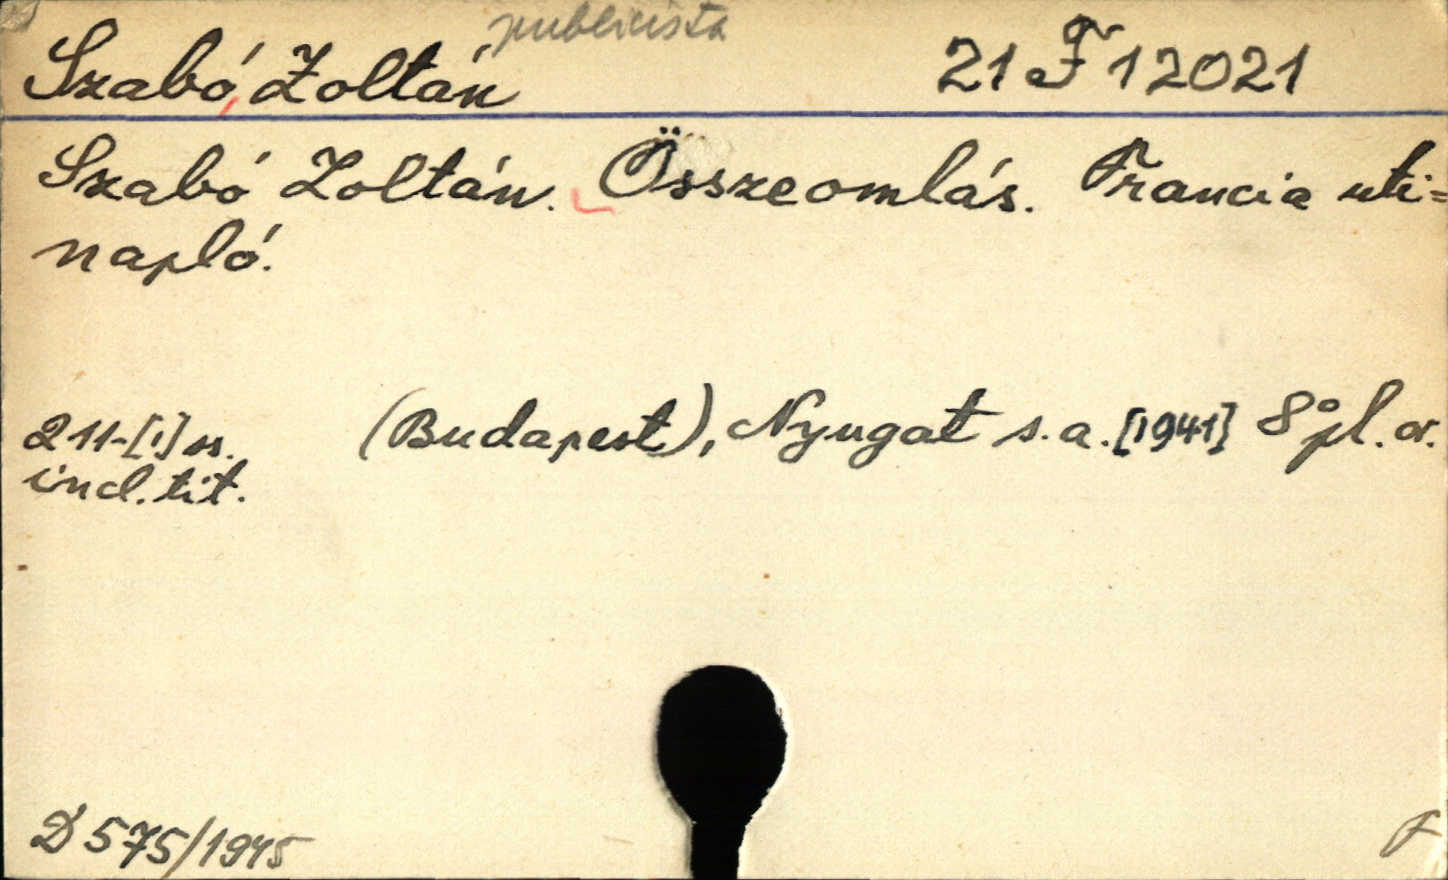 publicista
Szabó, Zoltán 21 F 12021
Szabó Zoltán. Összeomlás. Francia uti=
napló.
211-[1] ss. (Budapest), Nyugat s.a. [1941] 8° pl. or.
incl. tit.
D 575/1945
F